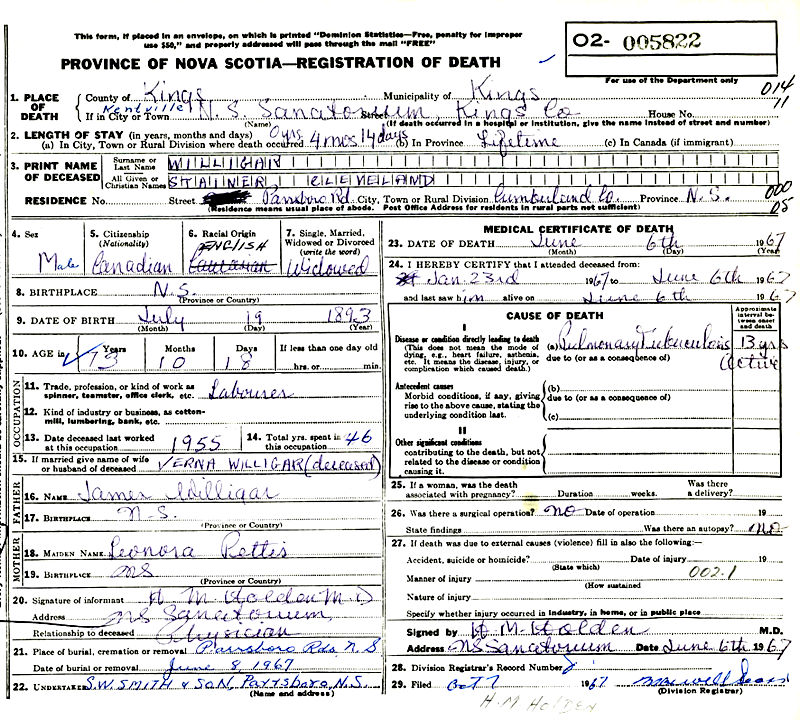 This form, if placed in an envelope, on which is printed "Dominion Statistics—Free, penalty for improper
use $50," and properly addressed will pass through the mail "FREE"
PROVINCE OF NOVA SCOTIA—REGISTRATION OF DEATH
O2- 005822
For use of the Department only
014
11
1. PLACE OF DEATH
County of Kings Municipality of Kings
If in City or Town Kentville N.S. Sanatorium, Kings Co Street House No.
(Name) (If death occurred in a hospital or institution, give the name instead of street and number)
2. LENGTH OF STAY (in years, months and days)
(a) In City, Town or Rural Division where death occurred 0 yrs 4 mos 14 days (b) In Province Lifetime (c) In Canada (if immigrant)
3. PRINT NAME OF DECEASED
Surname or Last Name WILLIGAR
All Given or Christian Names STAINER CLEVELAND
RESIDENCE No. Street Parrsboro Rd. City, Town or Rural Division Cumberland Co. Province N.S.
000
05
(Residence means usual place of abode. Post Office Address for residents in rural parts not sufficient)
4. Sex Male
5. Citizenship (Nationality) Canadian
6. Racial Origin ENGLISH
7. Single, Married, Widowed or Divorced (write the word) Widowed
8. BIRTHPLACE N.S.
(Province or Country)
9. DATE OF BIRTH July 19 1893
(Month) (Day) (Year)
10. AGE in Years 73 Months 10 Days 18 If less than one day old hrs. or min.
OCCUPATION
11. Trade, profession, or kind of work as
spinner, teamster, office clerk, etc. Labourer
12. Kind of industry or business, as cotton-
mill, lumbering, bank, etc.
13. Date deceased last worked at this occupation 1955
14. Total yrs. spent in this occupation 46
15. If married give name of wife or husband of deceased VERNA WILLIGAR (deceased)
FATHER
16. NAME James Willigar
17. BIRTHPLACE N.S.
(Province or Country)
MOTHER
18. MAIDEN NAME Leonora Pettis
19. BIRTHPLACE NS
(Province or Country)
20. Signature of informant H. M. Holden M.D
Address NS Sanatorium
Relationship to deceased Physician
21. Place of burial, cremation or removal Parrsboro Rds N.S
Date of burial or removal June 8, 1967
22. UNDERTAKER S.W. SMITH & SON, Parrsboro, N.S.
(Name and address)
MEDICAL CERTIFICATE OF DEATH
23. DATE OF DEATH June 6th 1967
(Month) (Day)
24. I HEREBY CERTIFY that I attended deceased from:
Jan 23rd 1967 to June 6th 1967
and last saw him alive on June 6th 1967
CAUSE OF DEATH
Approximate interval between onset and death
I
Disease or condition directly leading to death
(This does not mean the mode of
dying, e.g., heart failure, asthenia,
etc. It means the disease, injury, or
complication which caused death.)
(a) Pulmonary Tuberculosis 13 yrs
due to (or as a consequence of) Active
Antecedent causes
Morbid conditions, if any, giving
rise to the above cause, stating the
underlying condition last.
(b)
due to (or as a consequence of)
(c)
II
Other significant conditions
contributing to the death, but not
related to the disease or condition
causing it.
25. If a woman, was the death associated with pregnancy? Duration weeks. Was there a delivery?
26. Was there a surgical operation? no Date of operation 19
State findings Was there an autopsy? no
27. If death was due to external causes (violence) fill in also the following:—
Accident, suicide or homicide? Date of injury 19
(State which)
Manner of injury 002.1
(How sustained
Nature of injury
Specify whether injury occurred in industry, in home, or in public place
Signed by H M Holden M.D.
Address NS Sanatorium Date June 6th 1967
28. Division Registrar's Record Number
29. Filed Oct 7 1967
(Division Registrar)
H. M HOLDEN